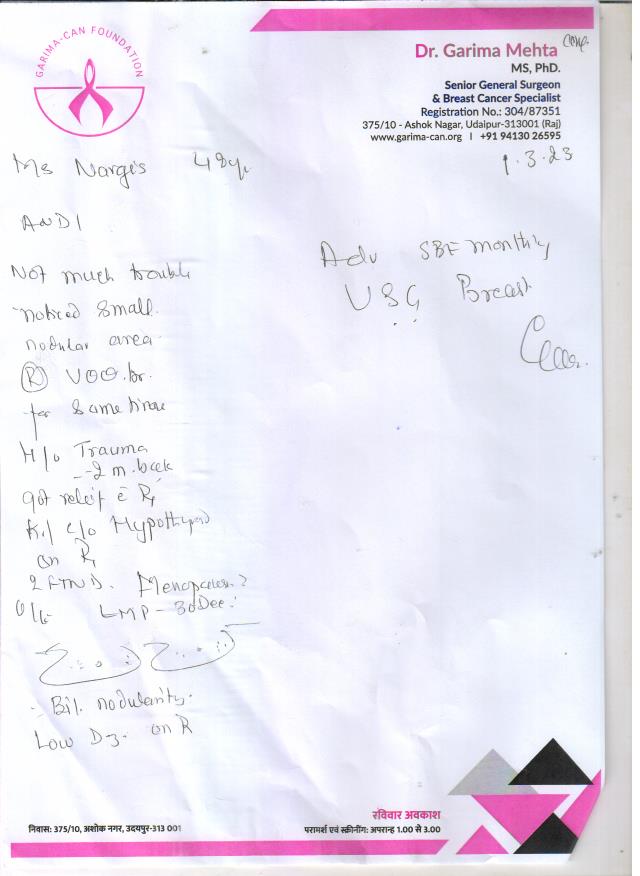 GARIMA-CAN FOUNDATION
Dr. Garima Mehta
MS, PhD.
Senior General Surgeon
& Breast Cancer Specialist
Registration No.: 304/87351
375/10 - Ashok Nagar, Udaipur-313001 (Raj)
www.garima-can.org I +91 94130 26595
1.3.23
Ms Nargis 48yr
ANDI
Not much trouble
noticed small
nodular area
(R) UOQ.br.
for sometime
H/o Trauma
2 m.back
got releif c̄ Rx
K/c/o Hypothyroid
on Rx
2 FTND. Menopause?
O/E LMP - 30 Dec.
Bil. nodularity.
Low D3. on R
Adv SBE monthly
USG Breast
रविवार अवकाश
निवास: 375/10, अशोक नगर, उदयपुर-313 001
परामर्श एवं स्क्रीनींग: अपरान्ह 1.00 से 3.00